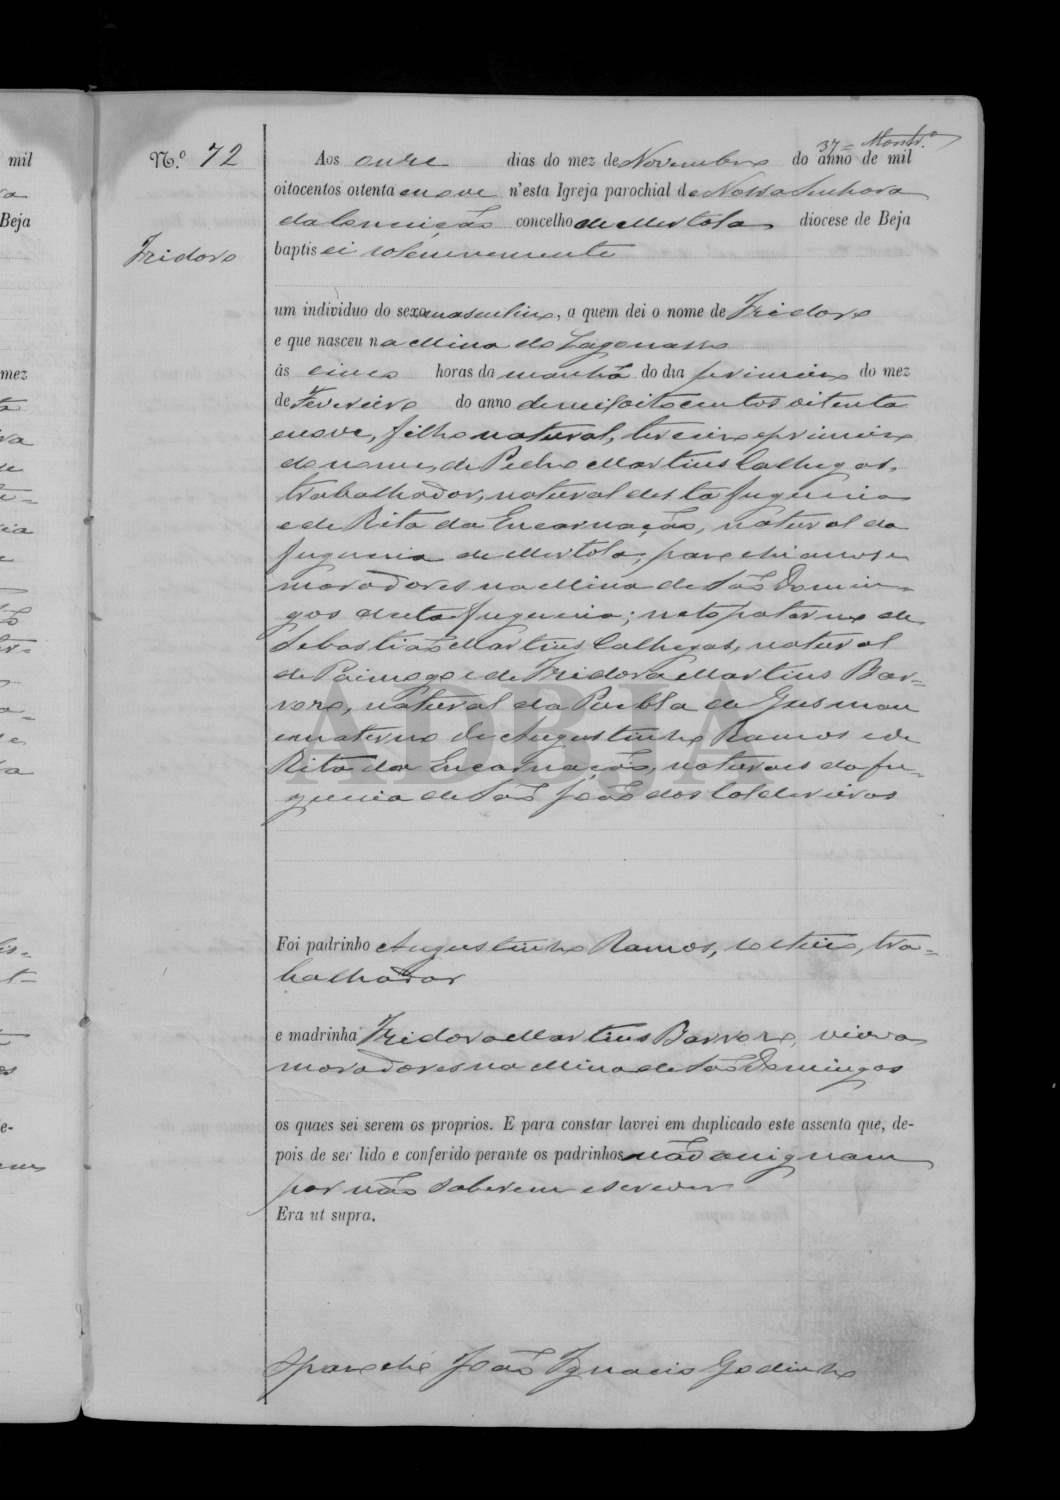 37= Montr.º
N.º 72 Aos onze dias do mez de Novembro do anno de mil
oitocentos oitenta e nove n'esta Igreja parochial de Nossa Senhora
da Conceição concelho de Mertola diocese de Beja
Izidoro baptisei solemnemente
um individuo do sexo masculino, a quem dei o nome de Izidoro
e que nasceu na Mina do
ás cinco horas da manhã do dia primeiro do mez
de Fevereiro do anno de mil oitocentos oitenta
e nove, filho natural, terceiro e primeiro
do nome, de Pedro Martins Calhegas,
trabalhador, natural desta freguezia
e de Rita da Encarnação, natural da
freguezia de Mertola, parochianos e
moradores na Mina de São Domin-
gos desta freguezia; neto paterno de
Sebastião Martins Calhegas, natural
de Paimogo e de Izidora Martins Bar-
roro, natural da Puebla de Gusman
e materno de Augustinho Ramos e de
Rita da Encarnação, naturaes da fre-
guezia de São João dos Caldeireiros
Foi padrinho Augustinho Ramos, solteiro, tra-
balhador
e madrinha Izidora Martins Barroro, viuva
moradores na Mina de São Domingos
os quaes sei serem os proprios. E para constar lavrei em duplicado este assento que, de-
pois de ser lido e conferido perante os padrinhos não assignam
por não saberem escrever
Era ut supra.
O parocho João Ignacio Godinho
ADBJA
mil
Beja
mez